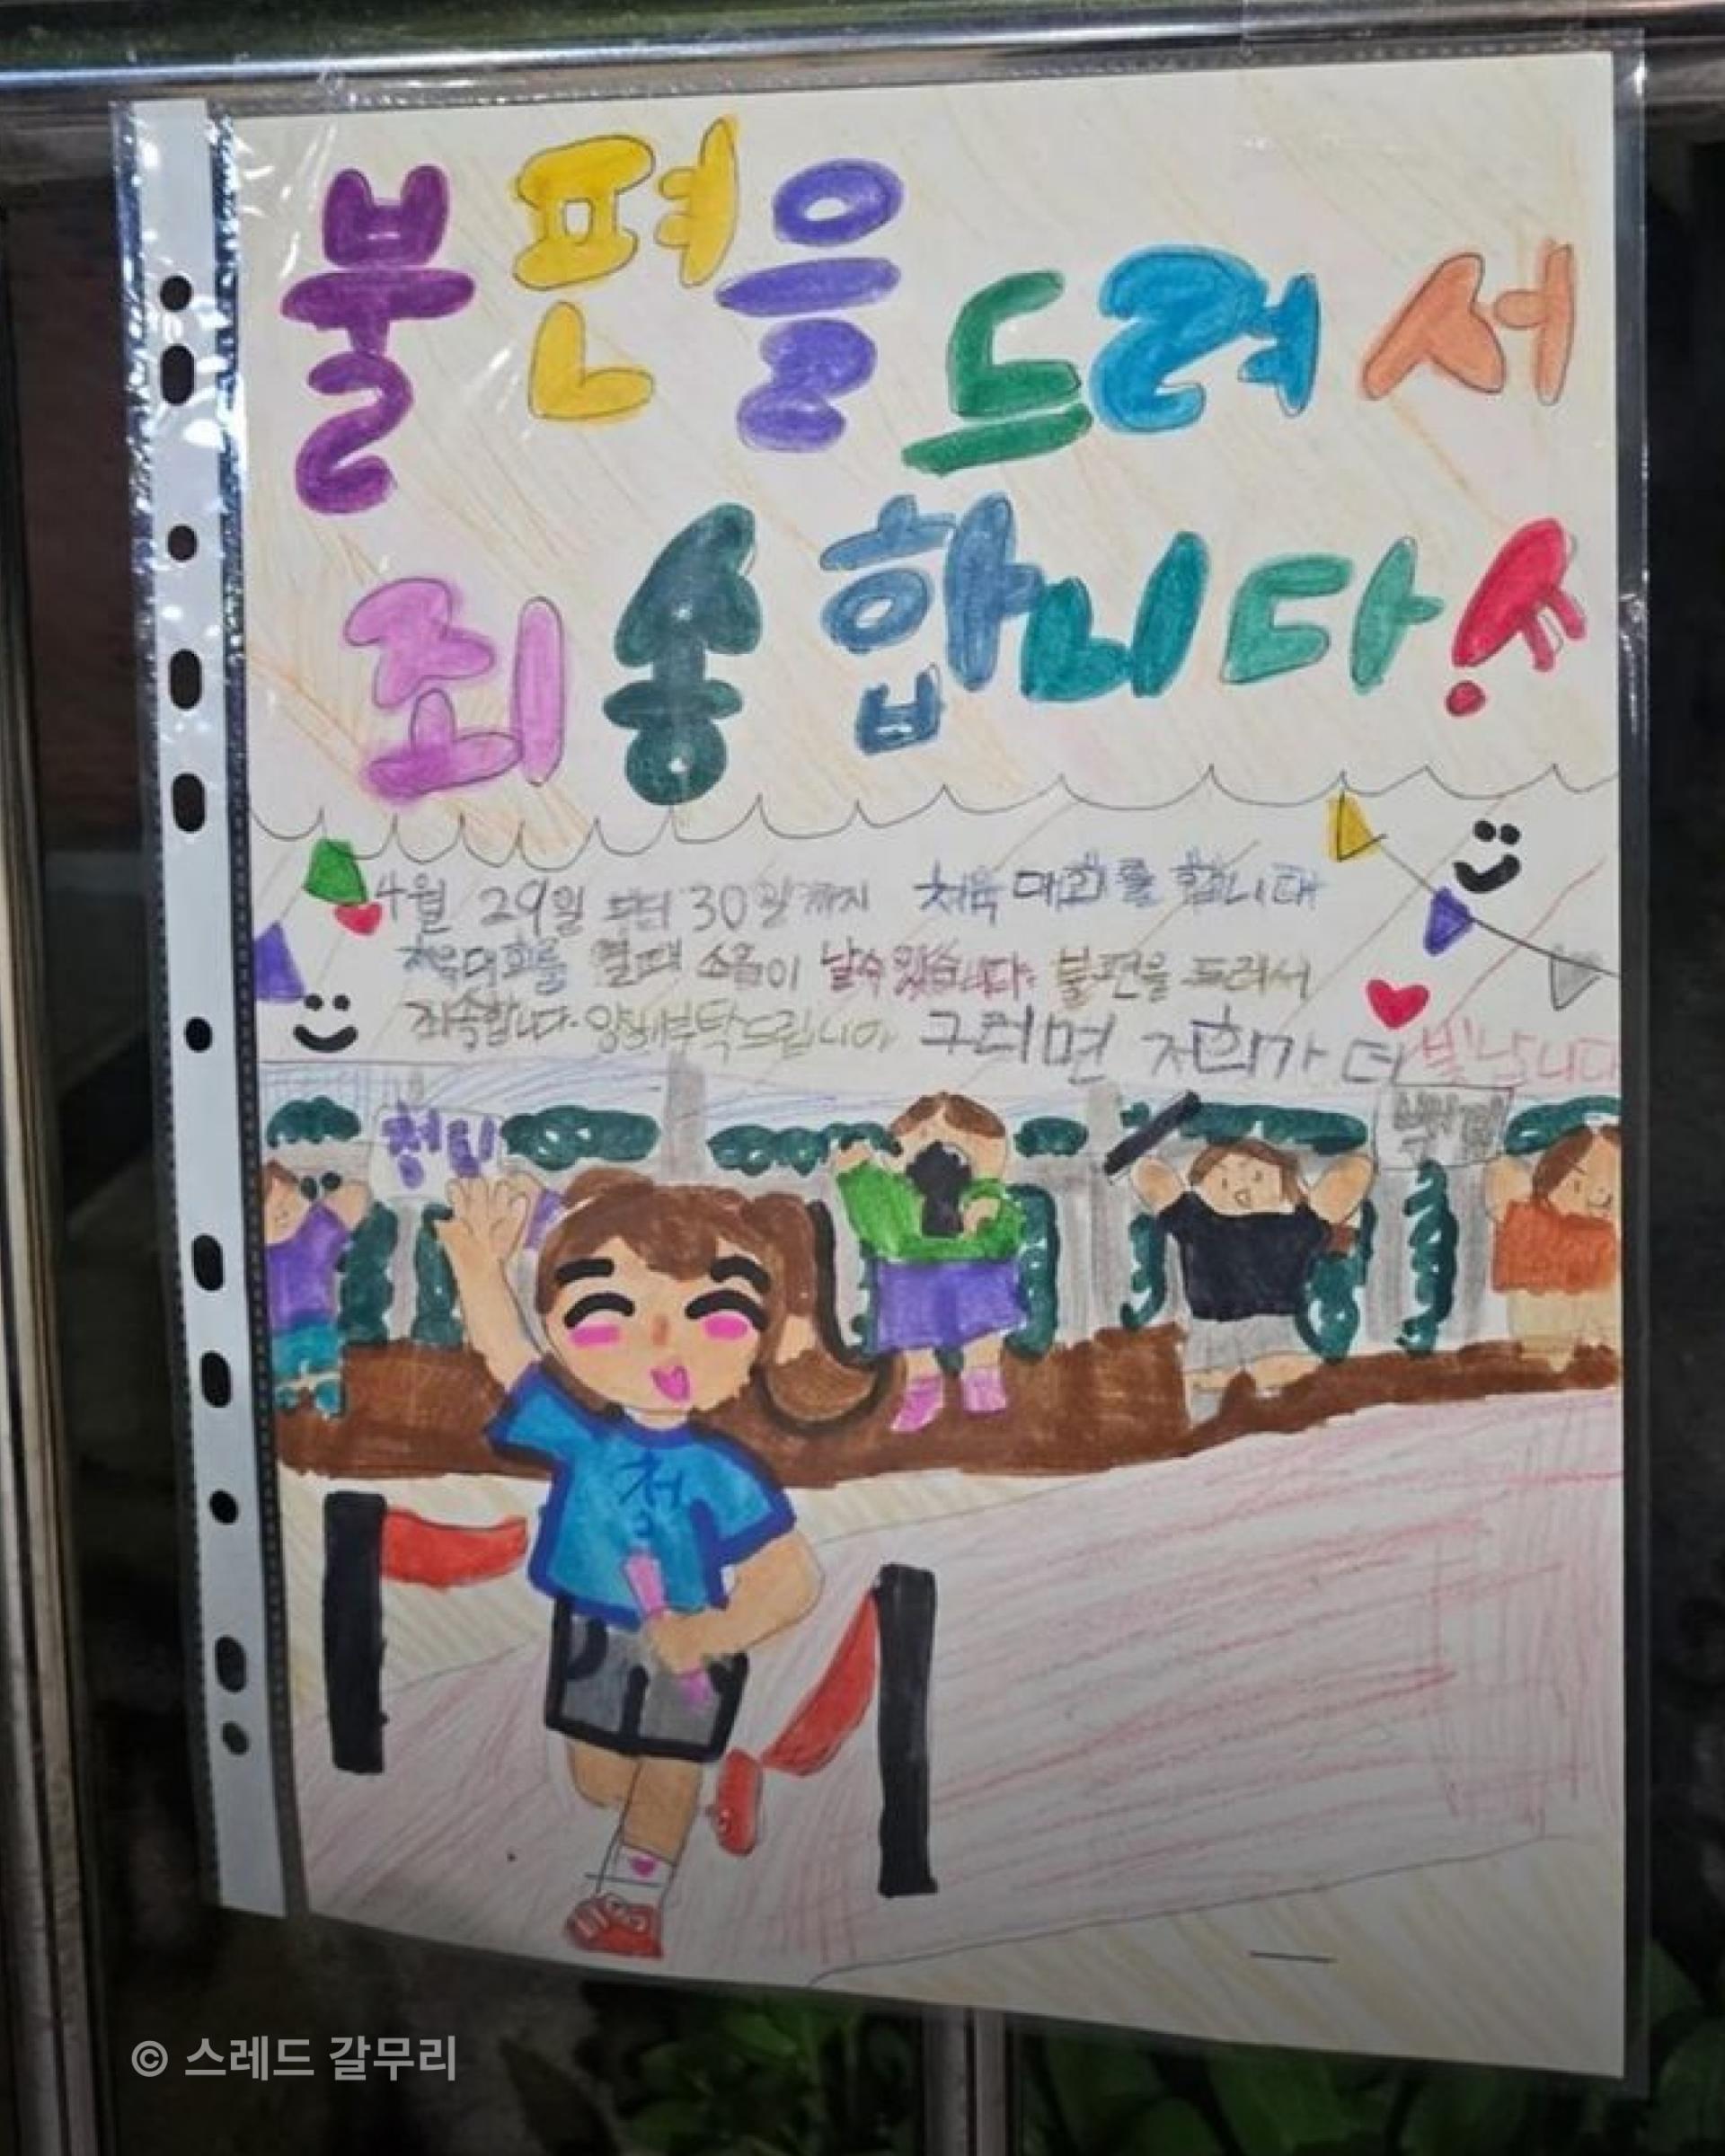 불편을 드려서
죄송합니다!
4월 29일 부터 30일까지 체육대회를 합니다
체육대회를 열때 소음이 날수 있습니다. 불편을 드려서
죄송합니다. 양해부탁드립니다 그러면 저희가 더 빛납니다
청팀
백팀
청
© 스레드 갈무리